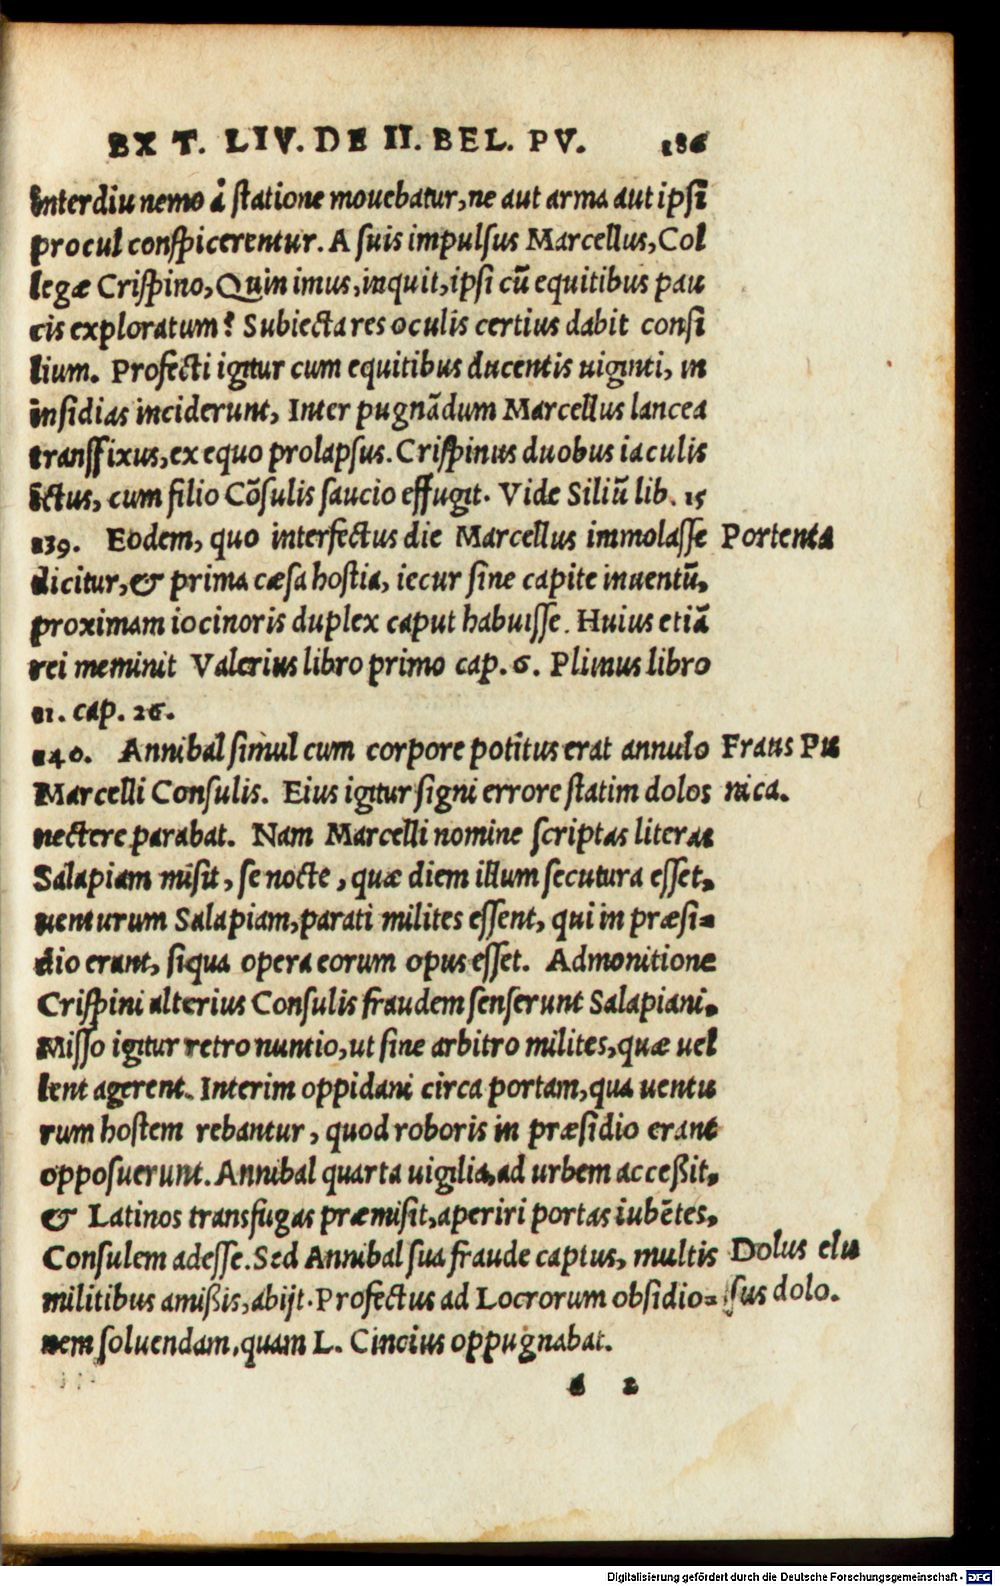 EX T. LIV. DE II. BEL. PV. 186
interdiu nemo à statione mouebatur, ne aut arma aut ipsi
procul conspicerentur. A suis impulsus Marcellus, Col
legæ Crispino, Quin imus, inquit, ipsi cũ equitibus pau
cis exploratum? Subiecta res oculis certius dabit consi
lium. Profecti igitur cum equitibus ducentis uiginti, in
insidias inciderunt, Inter pugnãdum Marcellus lancea
transfixus, ex equo prolapsus. Crispinus duobus iaculis
ictus, cum filio Cõsulis saucio effugit. Vide Siliũ lib. 15
239. Eodem, quo interfectus die Marcellus immolasse Portenta
dicitur, & prima cæsa hostia, iecur sine capite inuentũ,
proximam iocinoris duplex caput habuisse. Huius etiã
rei meminit Valerius libro primo cap. 6. Plinius libro
11. cap. 26.
240. Annibal simul cum corpore potitus erat annulo Fraus Pu
Marcelli Consulis. Eius igitur signi errore statim dolos nica.
nectere parabat. Nam Marcelli nomine scriptas literas
Salapiam misit, se nocte, quæ diem illum secutura esset,
uenturum Salapiam, parati milites essent, qui in præsi=
dio erant, siqua opera eorum opus esset. Admonitione
Crispini alterius Consulis fraudem senserunt Salapiani.
Misso igitur retro nuntio, ut sine arbitro milites, quæ uel
lent agerent. Interim oppidani circa portam, qua uentu
rum hostem rebantur, quod roboris in præsidio erant
opposuerunt. Annibal quarta uigilia, ad urbem acceßit,
& Latinos transfugas præmisit, aperiri portas iubẽtes,
Consulem adesse. Sed Annibal sua fraude captus, multis Dolus elu
militibus amißis, abijt. Profectus ad Locrorum obsidio= sus dolo.
nem soluendam, quam L. Cincius oppugnabat.
2
Digitalisierung gefördert durch die Deutsche Forschungsgemeinschaft - DFG